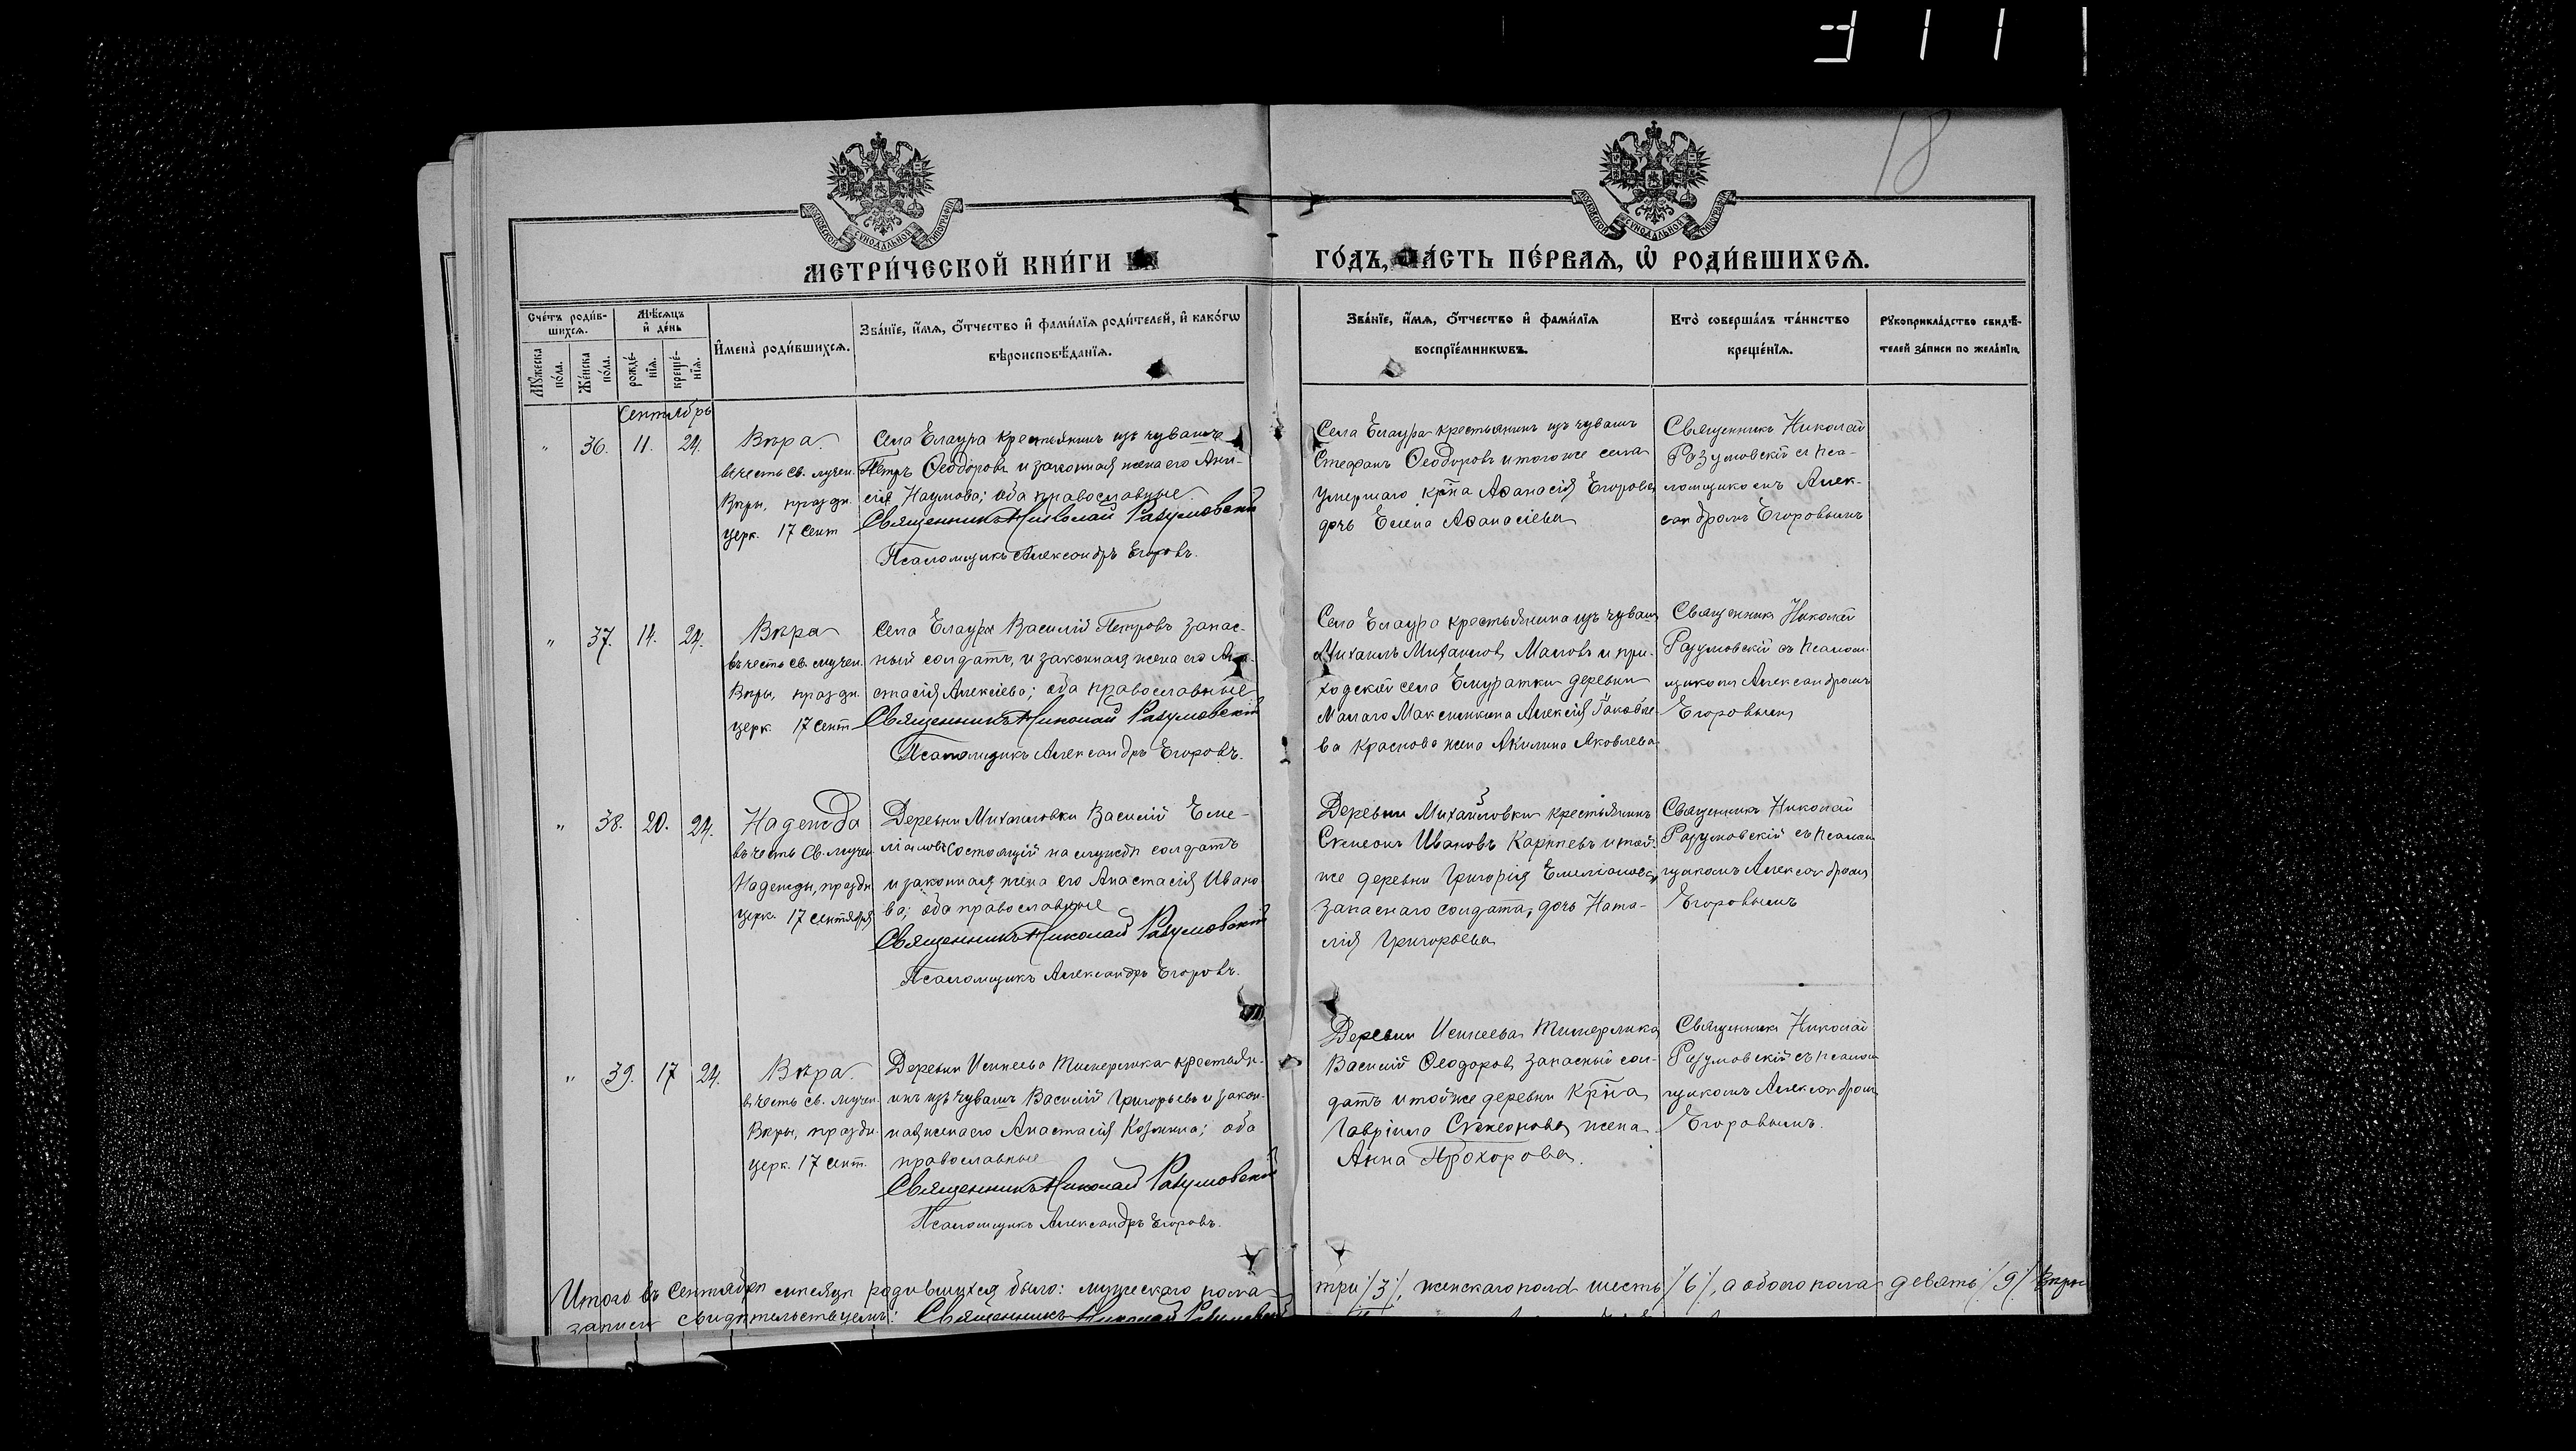 18
МОСКОВСКОЙ СѴНОДАЛЬНОЙ ТИПОГРАФІИ
МОСКОВСКОЙ СѴНОДАЛЬНОЙ ТИПОГРАФІИ
МЕТРИ́ЧЕСКОЙ КНИ́ГИ
ГО́ДЪ, ЧА́СТЬ ПЕ́РВАѦ, Ѡ҆ РОДИ́ВШИХСѦ.
Сче́тъ роди́в-
шихсѧ.
Мѣ́сѧцъ
и҆ де́нь
Мꙋ́жеска
по́ла.
Же́нска
по́ла.
рожде́-
нїѧ.
креще́-
нїѧ.
И҆мена̀ роди́вшихсѧ.
Зва́нїе, и҆́мѧ, ѻ҆́тчество и҆ фами́лїѧ роди́телей, и҆ како́гѡ
вѣроисповѣ́данїѧ.
Зва́нїе, и҆́мѧ, ѻ҆́тчество и҆ фами́лїѧ
воспрїе́мникѡвъ.
Кто̀ соверша́лъ та́инство
креще́нїѧ.
Рꙋкоприкла́дство свидѣ́-
телей за́писи по жела́нїю.
Сентябрь
" 36. 11. 24.
Вѣра
въ честь св. мучен.
Вѣры, праздн.
церк. 17 Сент
Села Елаура крестьянинъ изъ чувашъ
Петръ Ѳеодоровъ и законная жена его Ани-
сія Наумова; оба православные.
Священникъ Николай Разумовскій
Псаломщикъ Александръ Егоровъ.
Села Елаура крестьянинъ изъ чувашъ
Стефанъ Ѳеодоровъ и того же села
умершаго кр̃на Аѳанасія Егорова
дочь Елена Аѳанасіева
Священникъ Николай
Разумовскій съ Пса-
ломщикомъ Алек-
сандромъ Егоровымъ
" 37. 14. 24.
Вѣра
въ честь св. мучен.
Вѣры, праздн.
церк. 17 Сент
Села Елаура Василій Петровъ запас-
ный солдатъ, и законная жена его Ана-
стасія Алексіева; оба православные
Священникъ Николай Разумовскій
Псаломщикъ Александръ Егоровъ.
Села Елаура крестьянина изъ чувашъ
Михаилъ Михаиловъ Маловъ и при-
ходской села Емуратки деревни
Малаго Максимкина Алексія Іаковле-
ва Краснова жена Акилина Яковлева
Священникъ Николай
Разумовскій съ Псалом-
щикомъ Александромъ
Егоровымъ
" 38. 20. 24.
Надежда
въ честь Св. мучен.
Надежды, праздн.
церк. 17 Сентября
Деревни Михайловки Василій Еме-
ліановъ состоящій на службѣ солдатъ
и законная жена его Анастасія Ивано
ва; оба православные
Священникъ Николай Разумовскій
Псаломщикъ Александръ Егоровъ.
Деревни Михайловки крестьянинъ
Симеонъ Ивановъ Карпѣевъ и той
же деревни Григорія Емеліанова
запаснаго солдата, дочь Ната-
лія Григорьева
Священникъ Николай
Разумовскій съ Псалом
щикомъ Александромъ
Егоровымъ
" 39. 17 24.
Вѣра.
въ честь св. мучен.
Вѣры, праздн.
церк. 17 Сент.
Деревни Тимерлика крестьян-
инъ изъ чувашъ Василій Григорьевъ и закон-
ная жена его Анастасія Козмина; оба
православные
Священникъ Николай Разумовскій
Псаломщикъ Александръ Егоровъ.
Деревни Тимерлика
Василій Ѳеодоровъ запасный сол-
датъ и той же деревни кр̃на
Гавріила Симеонова жена
Анна Прохорова.
Священникъ Николай
Разумовскій съ Псалом
щикомъ Александромъ
Егоровымъ.
Итого въ Сентябрѣ мѣсяцѣ родившихся было: мужескаго пола
три /3/, женскаго пола шесть /6/, а обоего пола девять /9/ Вѣрн
записи свидѣтельствуемъ: Священникъ Николай Разумовскій